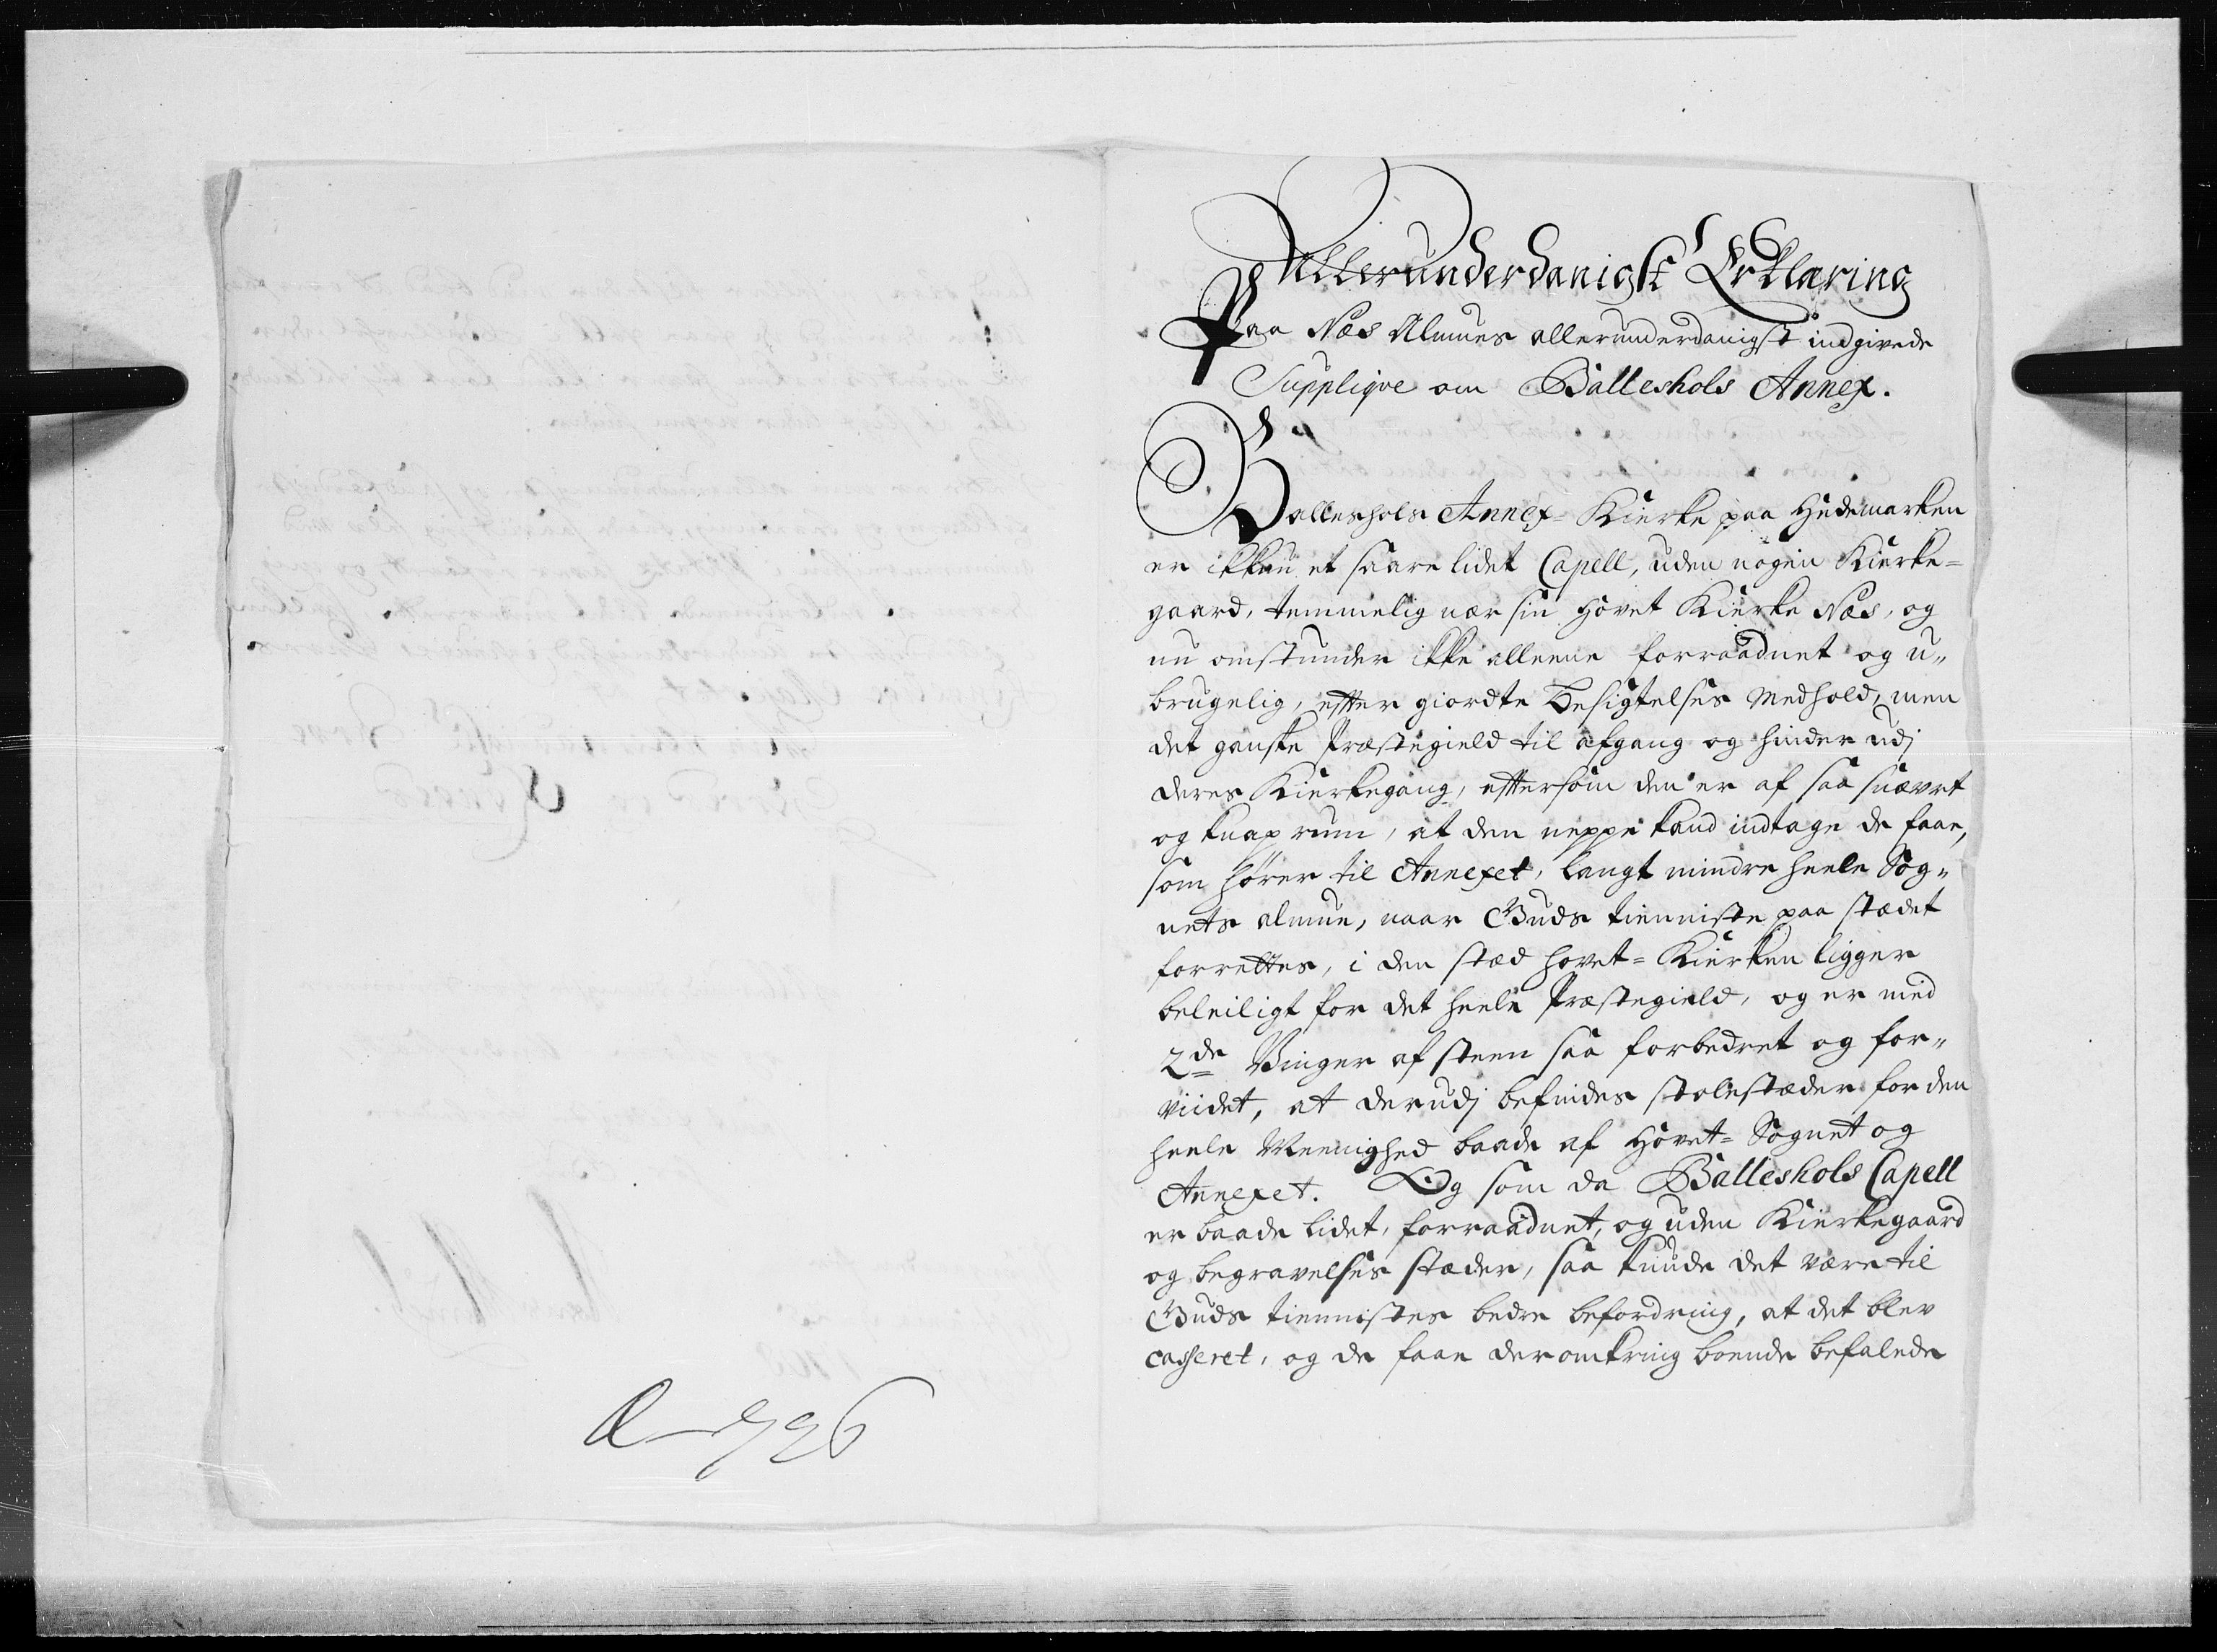 Allerunderdanigst Erklæring
Paa Næs Almues allerunderdanigst indgivede
Suppliqve om Balleshols Annex.
Balleshols Annex-Kierke paa Hedemarken
er ikkun et saare lidet Capell, uden nogen Kierke-
gaard, temmelig nær sin Hovet Kierke Næs, og
nu omstunder ikke alleene forraadnet og u-
brugelig, effter giordte Besigtelses Medhold, men
det ganske Præstegield til afgang og hinder udj
deres Kierkegang, efftersom den er af saa snævert
og knap rum, at den neppe kand indtage de faae,
som hører til Annexet, langt mindre heele Sog-
nets almue, naar Guds tienniste paa stædet
forrettes, i den stæd hovet-Kierken ligger
beleiligt for det heele Præstegield, og er med
2de Vinger af steen saa forbedret og for-
viidet, at derudj befindes stolestæder for den
heele Meenighed baade af Hovet-Sognet og
Annexet. Og som da Balleshols Capell
er baade lidet, forraadnet, og uden Kierkegaard
og begravelses stæder, saa kunde det være til
Guds tiennistes bedre befordring, at det blev
casseret, og de faae deromkring boende befalede